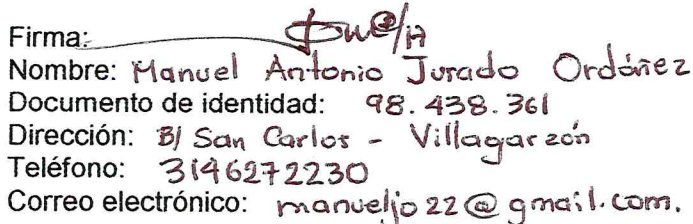 Firma:
Nombre: Manuel Antonio Jurado Ordóñez
Documento de identidad: 98.438.361
Dirección: B/ San Carlos - Villagarzón
Teléfono: 3146272230
Correo electrónico: manueljo22@gmail.com.